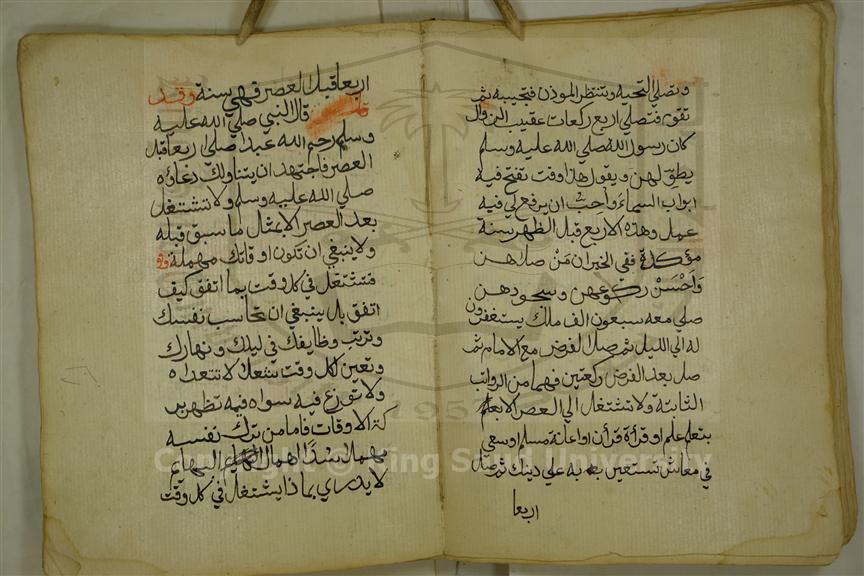 وتصلي التحية وتنتظر الموذن فتجيبه ثم
تقوم فتصلي اربع ركعات عقيب الزوال
كان رسول الله صلي الله عليه وسلم
يطولهن ويقول هذا وقت تفتح فيه
ابواب السماء واحب ان يرفع لي فيه
عمل وهذه الاربع قبل الظهر سنة
مؤكدة ففي الخبر ان من صلاهن
واحسن ركوعهن وسجودهن
صلي معه سبعون الف ملك يستغفرون
له الي الليل ثم صل الفرض مع الامام ثم
صل بعد الفرض ركعتين فهما من الرواتب
الثابتة ولا تشتغل الي العصر الا بعلم
بتعلم علم او قراة قرأن او اعانة مسلم او سعي
في معاش تستعين به علي دينك ثم صل
اربعا
اربعا قبل العصر فهي سنة وقد
قال النبي صلي الله عليه
وسلم رحم الله عبدا صلي اربعا قبل
العصر فاجتهد ان يتناولك دعاؤه
صلي الله عليه وسلم ولا تشتغل
بعد العصر الا بمثل ما سبق قبله
ولا ينبغي ان تكون اوقاتك مهملة
فتشتغل في كل وقت بما اتفق كيف
اتفق بل ينبغي ان تحاسب نفسك
وترتب وظايفك في ليلك ونهارك
وتعين لكل وقت شغلا لا تتعداه
ولا توزع فيه سواه فبه تظهر بر
كة الاوقات فاما من ترك نفسه
مهملا سدا اهمال البهايم
لا يدري بماذا يشتغل في كل وقت
Copyright © King Saud University
1957